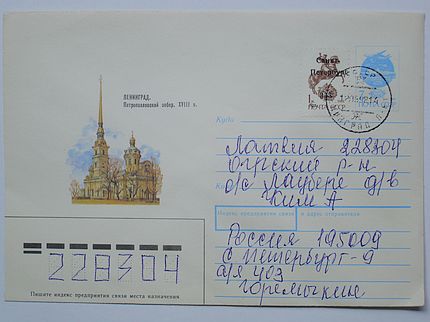 ЛЕНИНГРАД.
Петропавловский собор. XVIII в.
Санкт
Петербург
ПОЧТА
Куда
Латвия 228304
Огрский р-н
о/с Лаубере д/в
Ким А
Индекс предприятия связи и адрес отправителя
Россия 195009
С Петербург-9
а/я 403
Горемыкин
228304
Пишите индекс предприятия связи места назначения